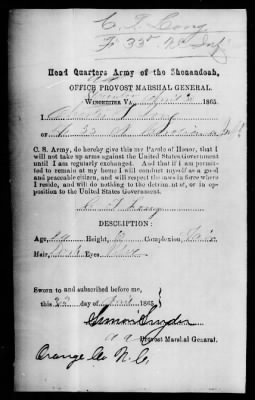 C. T. Long
F. 33" N.C. Inf
Head Quarters Army of the Shenandoah,
OFFICE PROVOST MARSHAL GENERAL.
WINCHESTER VA., April 1865.
I
of 33 Inf
C. S. Army, do hereby give this my Parole of Honor, that I
will not take up arms against the United States Government
until I am regularly exchanged. And that if I am per-
mitted to remain at my home I will conduct myself as a good
and peaceable citizen, and will respect the laws in force where
I reside, and will do nothing to the detriment of, or in op-
position to the United States Government.
Long
DESCRIPTION:
Age, Height, Complexion,
Hair, Eyes
Sworn to and subscribed before me,
this 22 day of April 1865
Simon Snyder
Provost Marshal General.
Orange Co N.C.